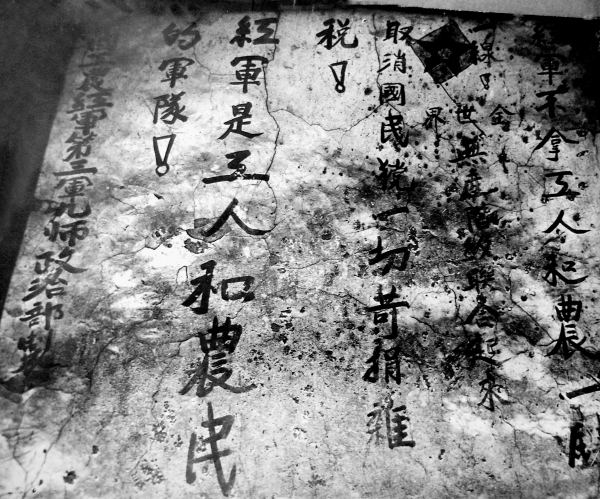 紅軍不拿工人和農
一
一線!
全
世
界
無産階級联合起來
取消國民党一切苛捐雜
税!
紅軍是工人和農民
的軍隊!
紅軍第三軍九师政治部製